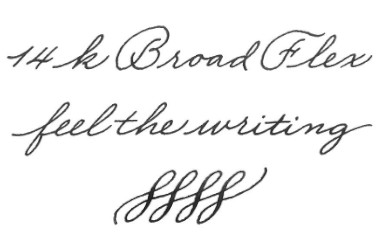 14 k Broad Flex
feel the writing